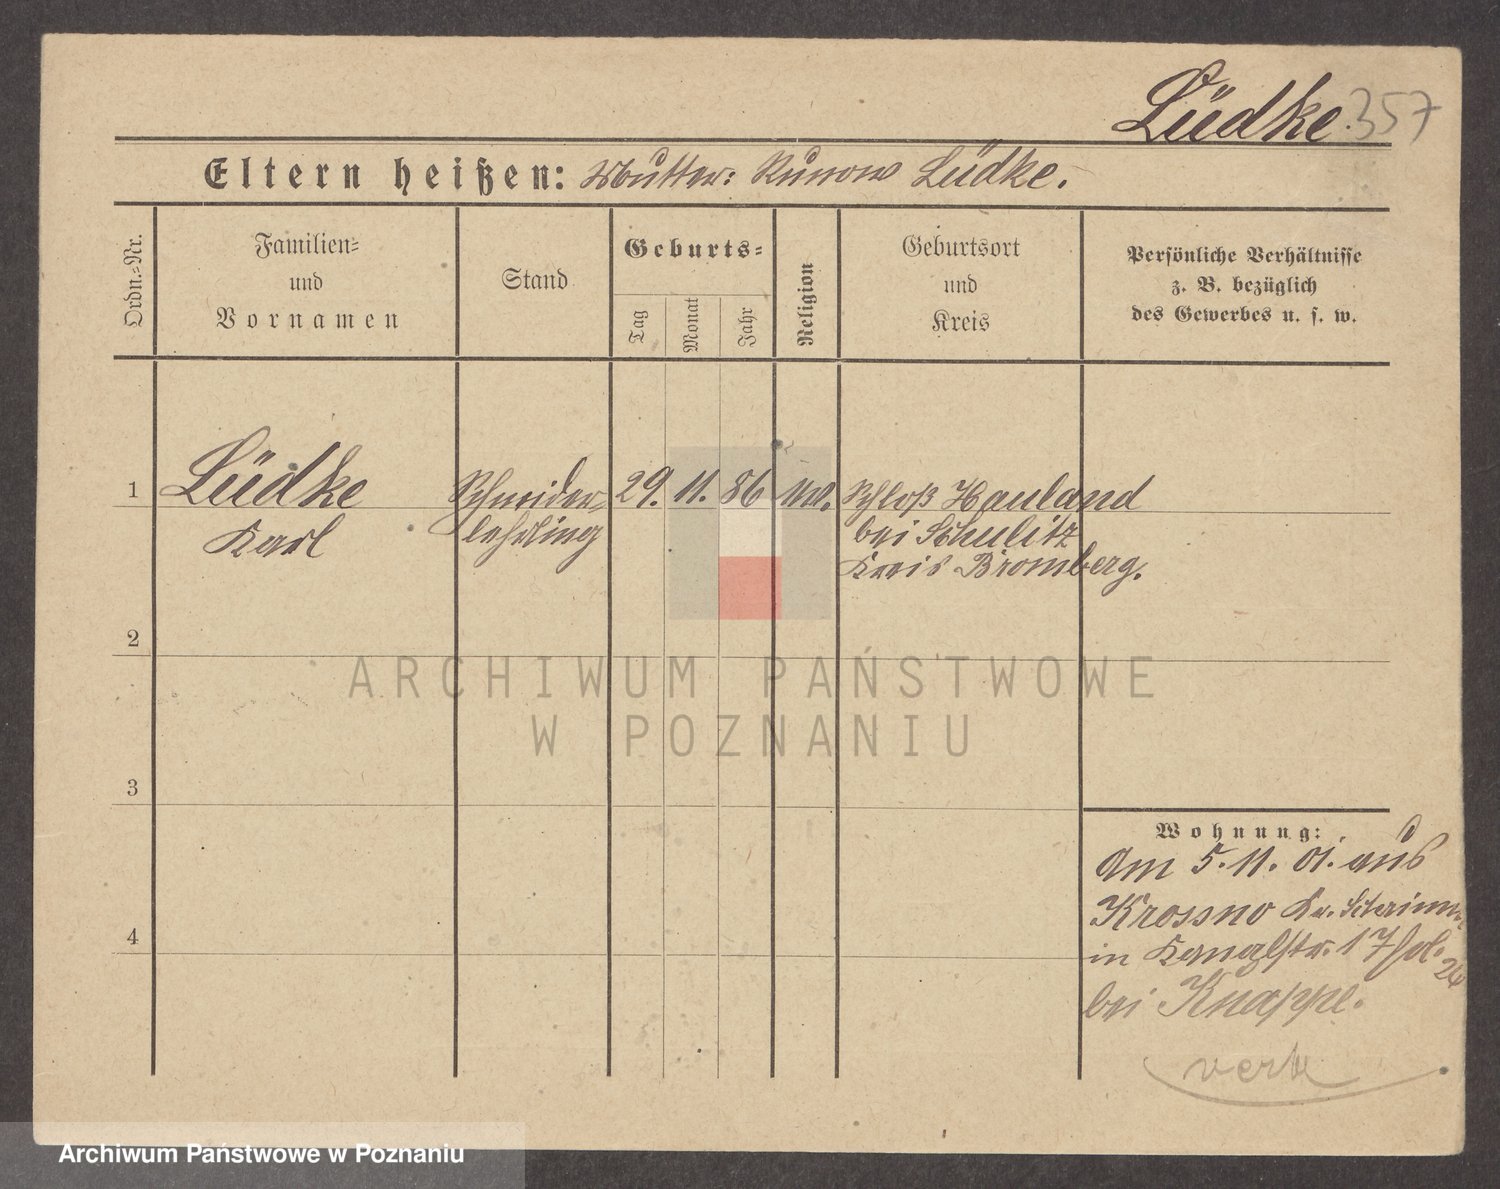 Lüdke 357
Eltern heißen: Mutter: Kunow Lüdke.
Ordn.=Nr.
Familien=
und
Vornamen
Stand
Geburts=
Tag
Monat
Jahr
Religion
Geburtsort
und
Kreis
Persönliche Verhältnisse
z. B. bezüglich
des Gewerbes u. s. w.
1 Lüdke Schneider= 29. 11. 86 Schloß Hauland
Karl lehrling bei Schulitz
Kreis Bromberg.
2
ARCHIWUM PAŃSTWOWE
W POZNANIU
3
Wohnung:
Am 5. 11. 01. aus
Krossno Kr.
4
in Kanalstr. 17
bei Knappe.
Archiwum Państwowe w Poznaniu